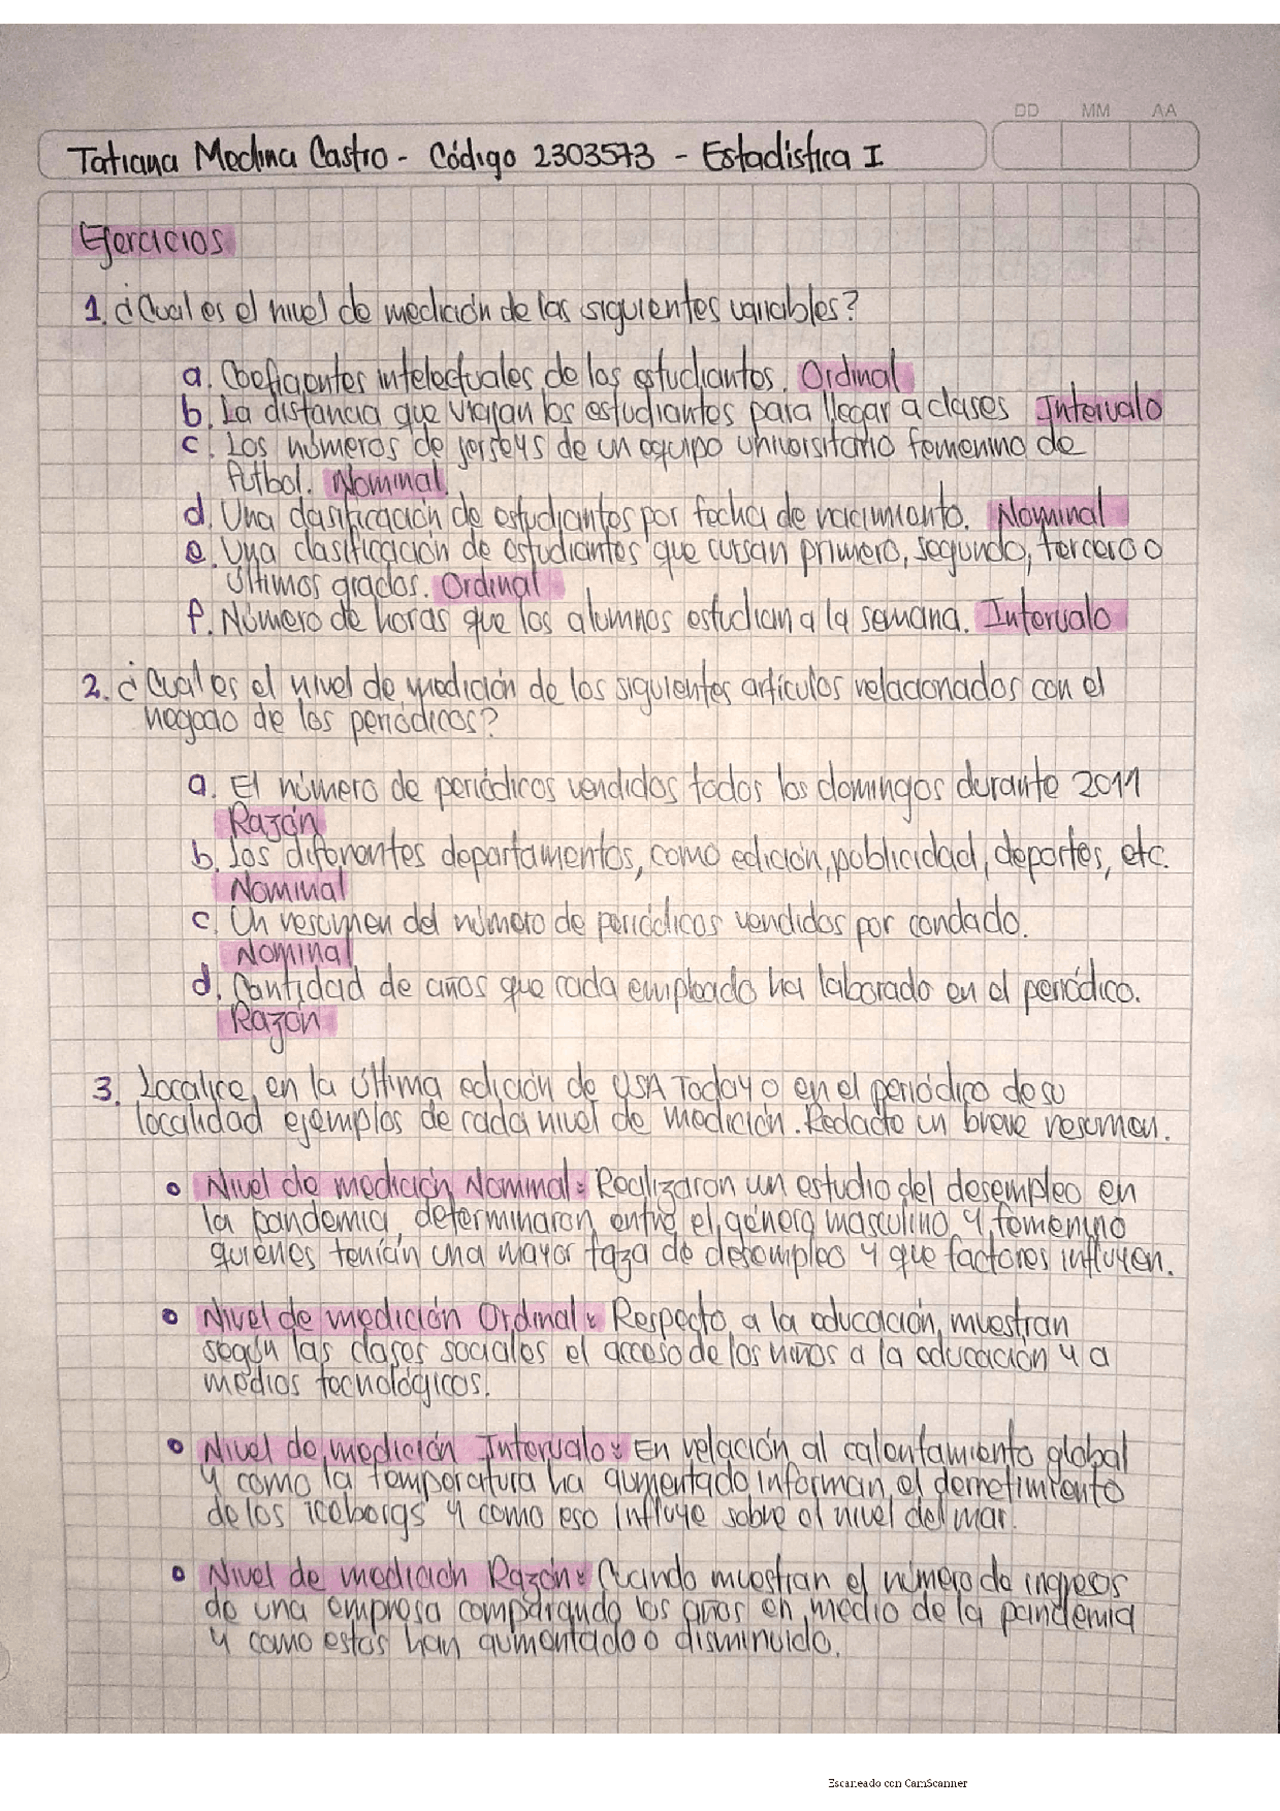 DD MM AA
Tatiana Medina Castro - Código 2303573 - Estadistica I
Ejercicios
1. ¿Cual es el nivel de medición de las siguientes variables?
a. Coeficientes intelectuales de los estudiantes. Ordinal
b. La distancia que viajan los estudiantes para llegar a clases Intervalo
c. Los números de jerseys de un equipo universitario femenino de
futbol. Nominal.
d. Una clasificación de estudiantes por fecha de nacimiento. Nominal
e. Una clasificación de estudiantes que cursan primero, segundo, tercero o
últimos grados. Ordinal
f. Número de horas que los alumnos estudian a la semana. Intervalo
2. ¿Cual es el nivel de medición de los siguientes artículos relacionados con el
negocio de los periódicos?
a. El número de periódicos vendidos todos los domingos durante 2011
Razón
b. Los diferentes departamentos, como edición, publicidad, deportes, etc.
Nominal
c. Un resumen del número de periódicos vendidos por condado.
Nominal
d. Cantidad de años que cada empleado ha laborado en el periódico.
Razón
3. Localice en la última edición de USA Today o en el periódico de su
localidad ejemplos de cada nivel de medición. Redacte un breve resumen.
• Nivel de medición Nominal: Realizaron un estudio del desempleo en
la pandemia, determinaron entre el género masculino y femenino
quienes tenían una mayor taza de desempleo y que factores influyen.
• Nivel de medición Ordinal: Respecto a la educación, muestran
según las clases sociales el acceso de los niños a la educación y a
medios tecnológicos.
• Nivel de medición Intervalo: En relación al calentamiento global
y como la temperatura ha aumentado informan el derretimiento
de los icebergs y como eso influye sobre el nivel del mar.
• Nivel de medición Razón: Cuando muestran el número de ingresos
de una empresa comparando los años en medio de la pandemia
y como estos han aumentado o disminuido.
Escaneado con CamScanner